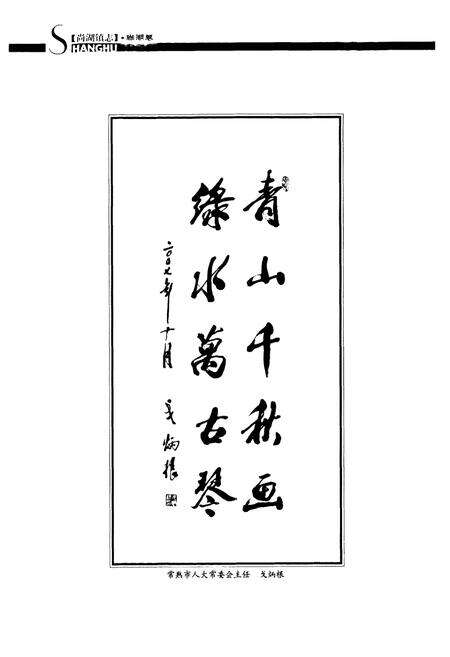 【尚湖镇志】
SHANGHU
青山千秋画
綠水萬古琴
二〇〇七年十月 戈炳根
常熟市人大常委会主任 戈炳根